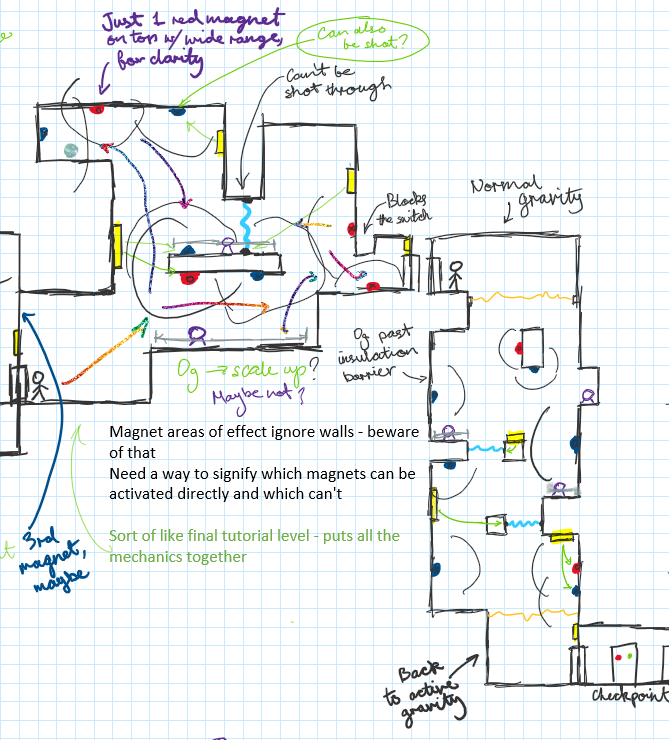 Just 1 red magnet
on top w/ wide range,
for clarity
Can also
be shot?
Can't be
shot through
Blocks
the switch
Normal
gravity
0g past
insulation
barrier
0g → scale up?
Maybe not?
Magnet areas of effect ignore walls - beware
of that
Need a way to signify which magnets can be
activated directly and which can't
Sort of like final tutorial level - puts all the
mechanics together
3rd
magnet,
maybe
Back
to active
gravity
Checkpoint